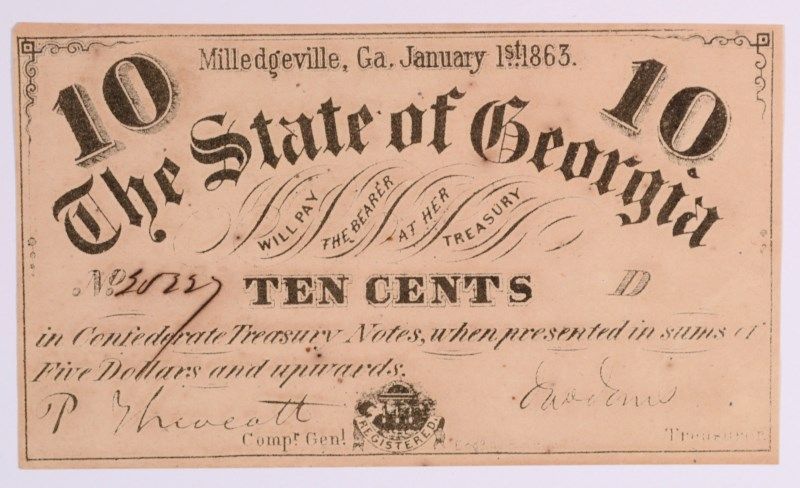 Milledgeville, Ga. January 1st. 1863.
10 10
The State of Georgia
WILL PAY THE BEARER AT HER TREASURY
No TEN CENTS D
in Confederate Treasury Notes, when presented in sums of
Five Dollars and upwards.
P Thweatt
Compr. Genl. REGISTERED Treasurer